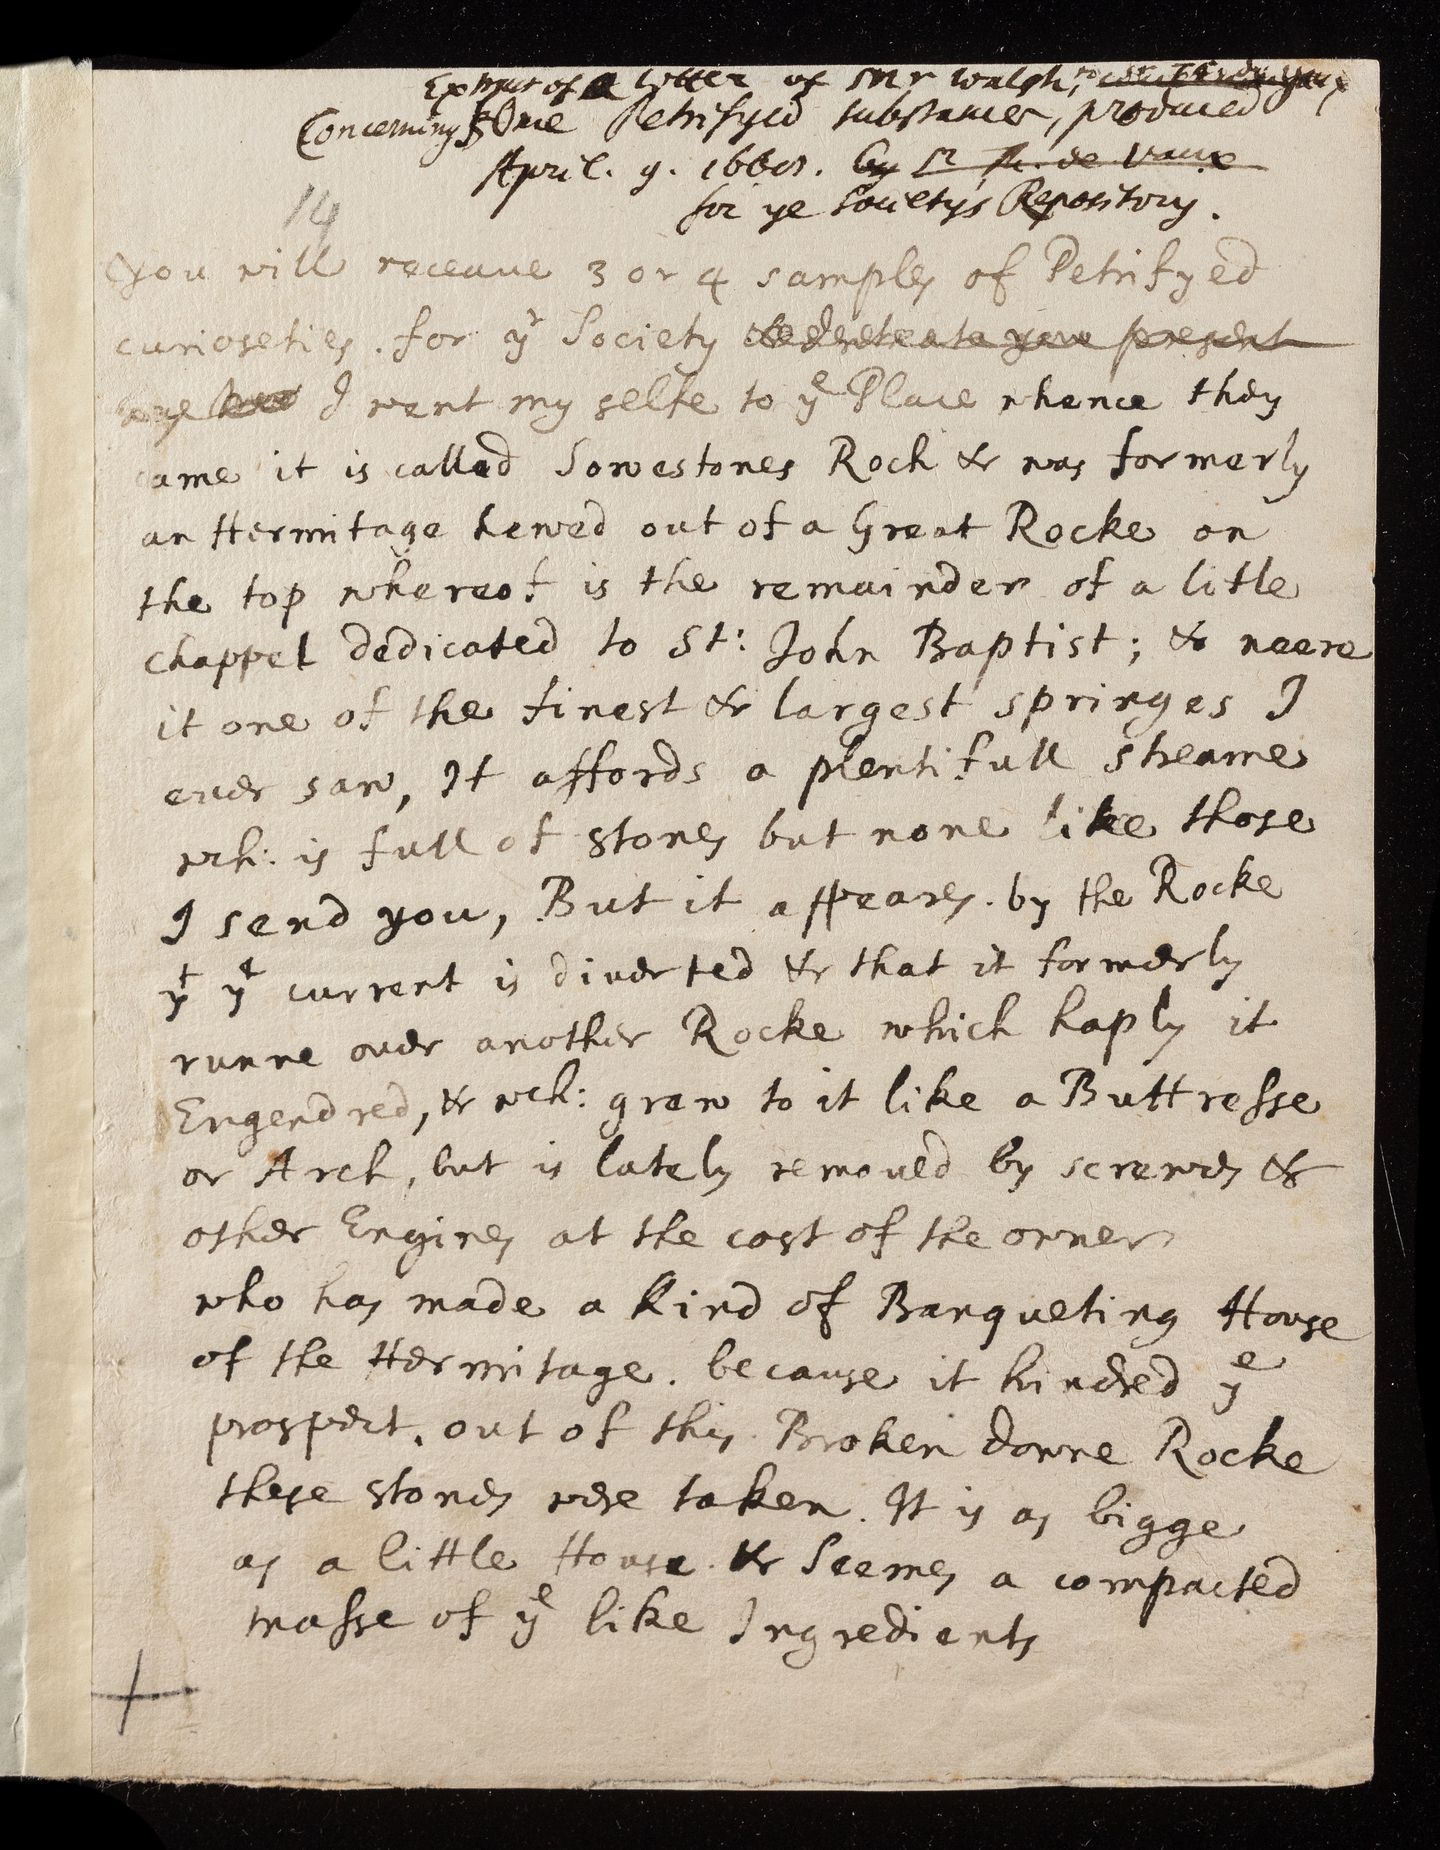 Extract of a Letter of Mr Walsh,
Concerning Some Petrifyed substances, produced
April. 9. 1668. by Sr Th. de Vaux
for ye Society's Repository.
14
you will receaue 3 or 4 samples of Petrifyed
curioseties. for yr Society present
I went my selfe to ye Place whence they
came it is called Sowestones Rock & was formerly
an Hermitage hewed out of a Great Rocke on
the top whereof is the remainder of a litle
chappel dedicated to St: John Baptist; & neere
it one of the finest & largest springes I
euer saw, It affords a plentifull streame
wch: is full of stones but none like those
I send you, But it appeares. by the Rocke
yt ye current is diuerted & that it formerly
runne ouer another Rocke which haply it
Engendred, & wch: grew to it like a Buttresse
or Arch, but is lately remoued by screwes &
other Engines at the cost of the owner
who has made a kind of Banqueting House
of the Hermitage. because it hindred ye
prospect. out of this Broken downe Rocke
these stones were taken. It is as bigge
as a little House. & Seemes a compacted
masse of ye like Ingredients